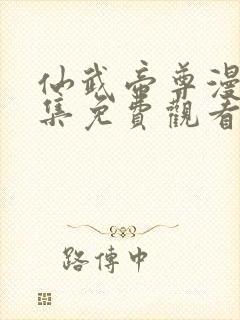 仙武帝尊漫
集免費觀看
路傳中